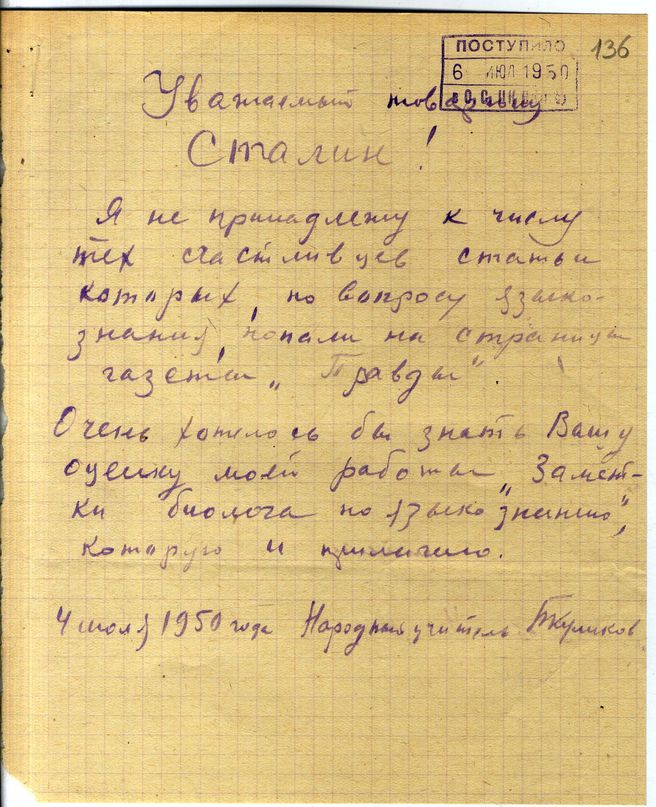 ПОСТУПИЛО
136
6 ИЮЛ 1950
Уважаемый товарищ
Сталин!
Я не принадлежу к числу
тех счастливцев статьи
которых, по вопросу языко-
знания, попали на страницы
газеты „Правды“.
Очень хотелось бы знать Вашу
оценку моей работы „Замет-
ки биолога по языкознанию“,
которую и прилагаю.
4 июля 1950 года Народный учитель Куликов